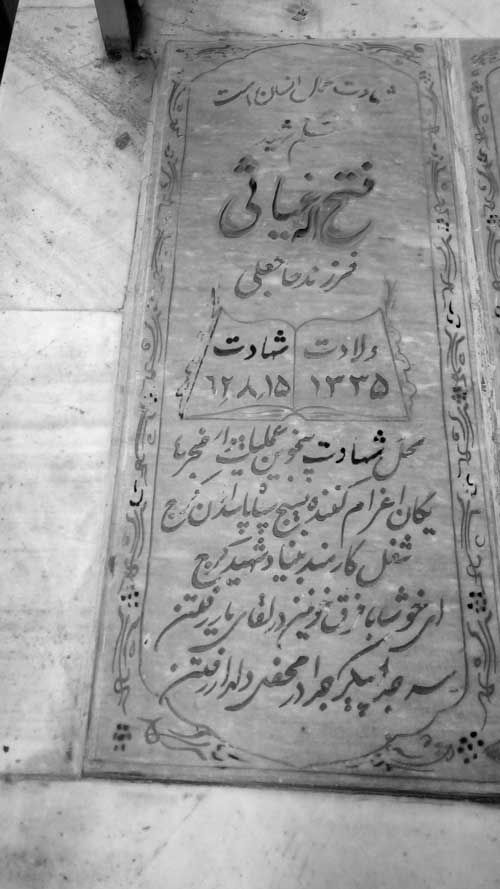 شهادت کمال انسان است
معلم شهید
فتح اله غیاثی
فرزند حاجعلی
ولادت شهادت
۱۳۳۵ ۶۲٫۸٫۱۵
محل شهادت پنجوین عملیات والفجر۴
یگان اعزام کننده بسیج سپاه پاسداران کرج
شغل کارمند بنیاد شهید کرج
ای خوشا با فرق خونین در لقای یار رفتن
سر جدا پیکر جدا در محفل دلدار رفتن